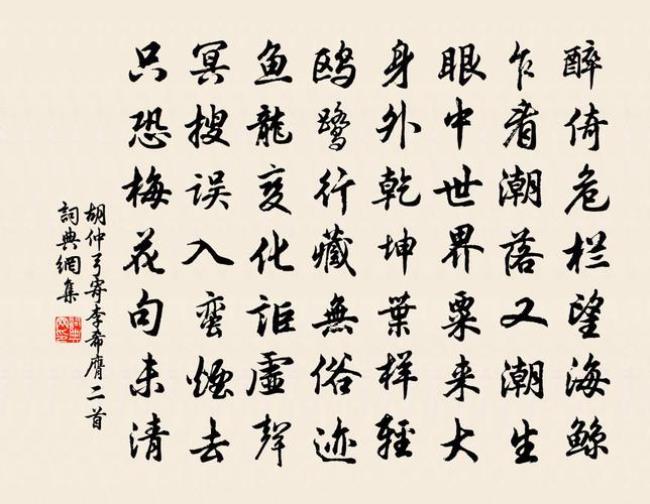 醉倚危栏望海鲸
乍看潮落又潮生
眼中世界粟来大
身外乾坤葉样輕
鸥鹭行藏無俗迹
鱼龍变化詎虚聲
冥搜误入蛮煙去
只恐梅花句未清
胡仲弓寄李希膺二首
詞典網集